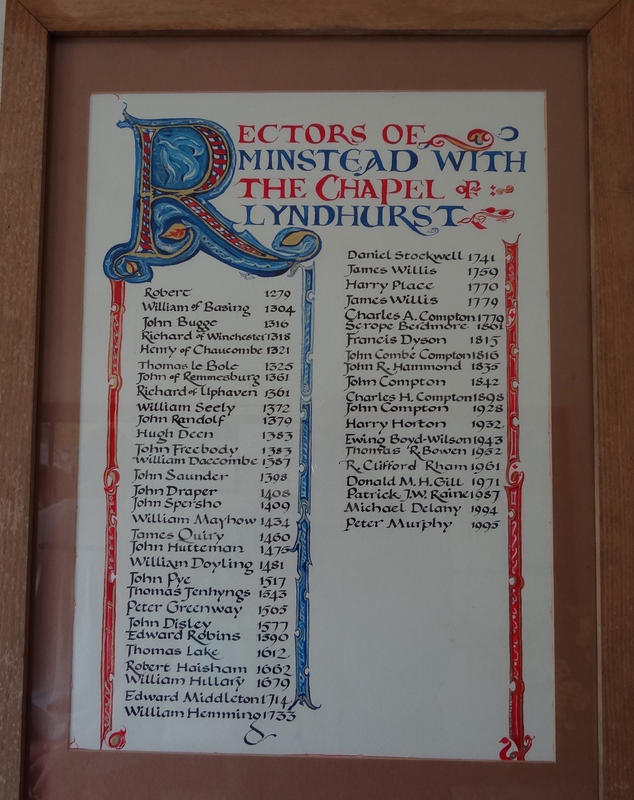 RECTORS OF
MINSTEAD WITH
THE CHAPEL OF
LYNDHURST
Robert 1279
William of Basing 1304
John Bugge 1316
Richard of Winchester 1318
Henry of Chaucombe 1321
Thomas le Bole 1325
John of Remmesburg 1361
Richard of Uphaven 1361
William Seely 1372
John Randolf 1379
Hugh Deen 1383
John Freebody 1383
William Daccombe 1387
John Saunder 1398
John Draper 1408
John Spersho 1409
William Mayhow 1434
James Quiry 1460
John Hutteman 1475
William Doyling 1481
John Pye 1517
Thomas Jenhyngs 1543
Peter Greenway 1565
John Disley 1577
Edward Robins 1590
Thomas Lake 1612
Robert Haisham 1662
William Hillary 1679
Edward Middleton 1714
William Hemming 1733
Daniel Stockwell 1741
James Willis 1759
Harry Place 1770
James Willis 1779
Charles A. Compton 1779
Scrope Berdmore 1801
Francis Dyson 1815
John Combe Compton 1816
John R. Hammond 1835
John Compton 1842
Charles H. Compton 1898
John Compton 1928
Harry Horton 1932
Ewing Boyd-Wilson 1943
Thomas R. Bowen 1952
R. Clifford Rham 1961
Donald M. H. Gill 1971
Patrick J.W. Raine 1987
Michael Delany 1994
Peter Murphy 1995